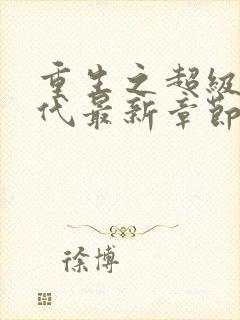 重生之超级
代最新章节
徐博